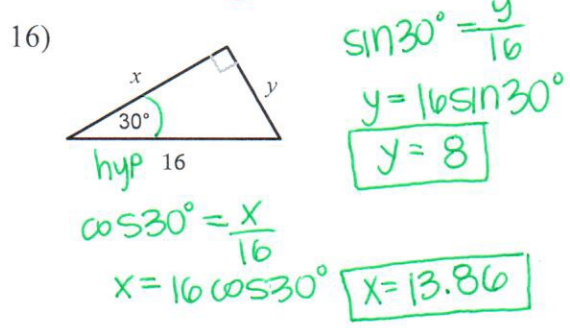 16)
x
y
30°
hyp 16
sin30° = y/16
y = 16sin30°
y = 8
cos30° = x/16
x = 16 cos30°
x = 13.86